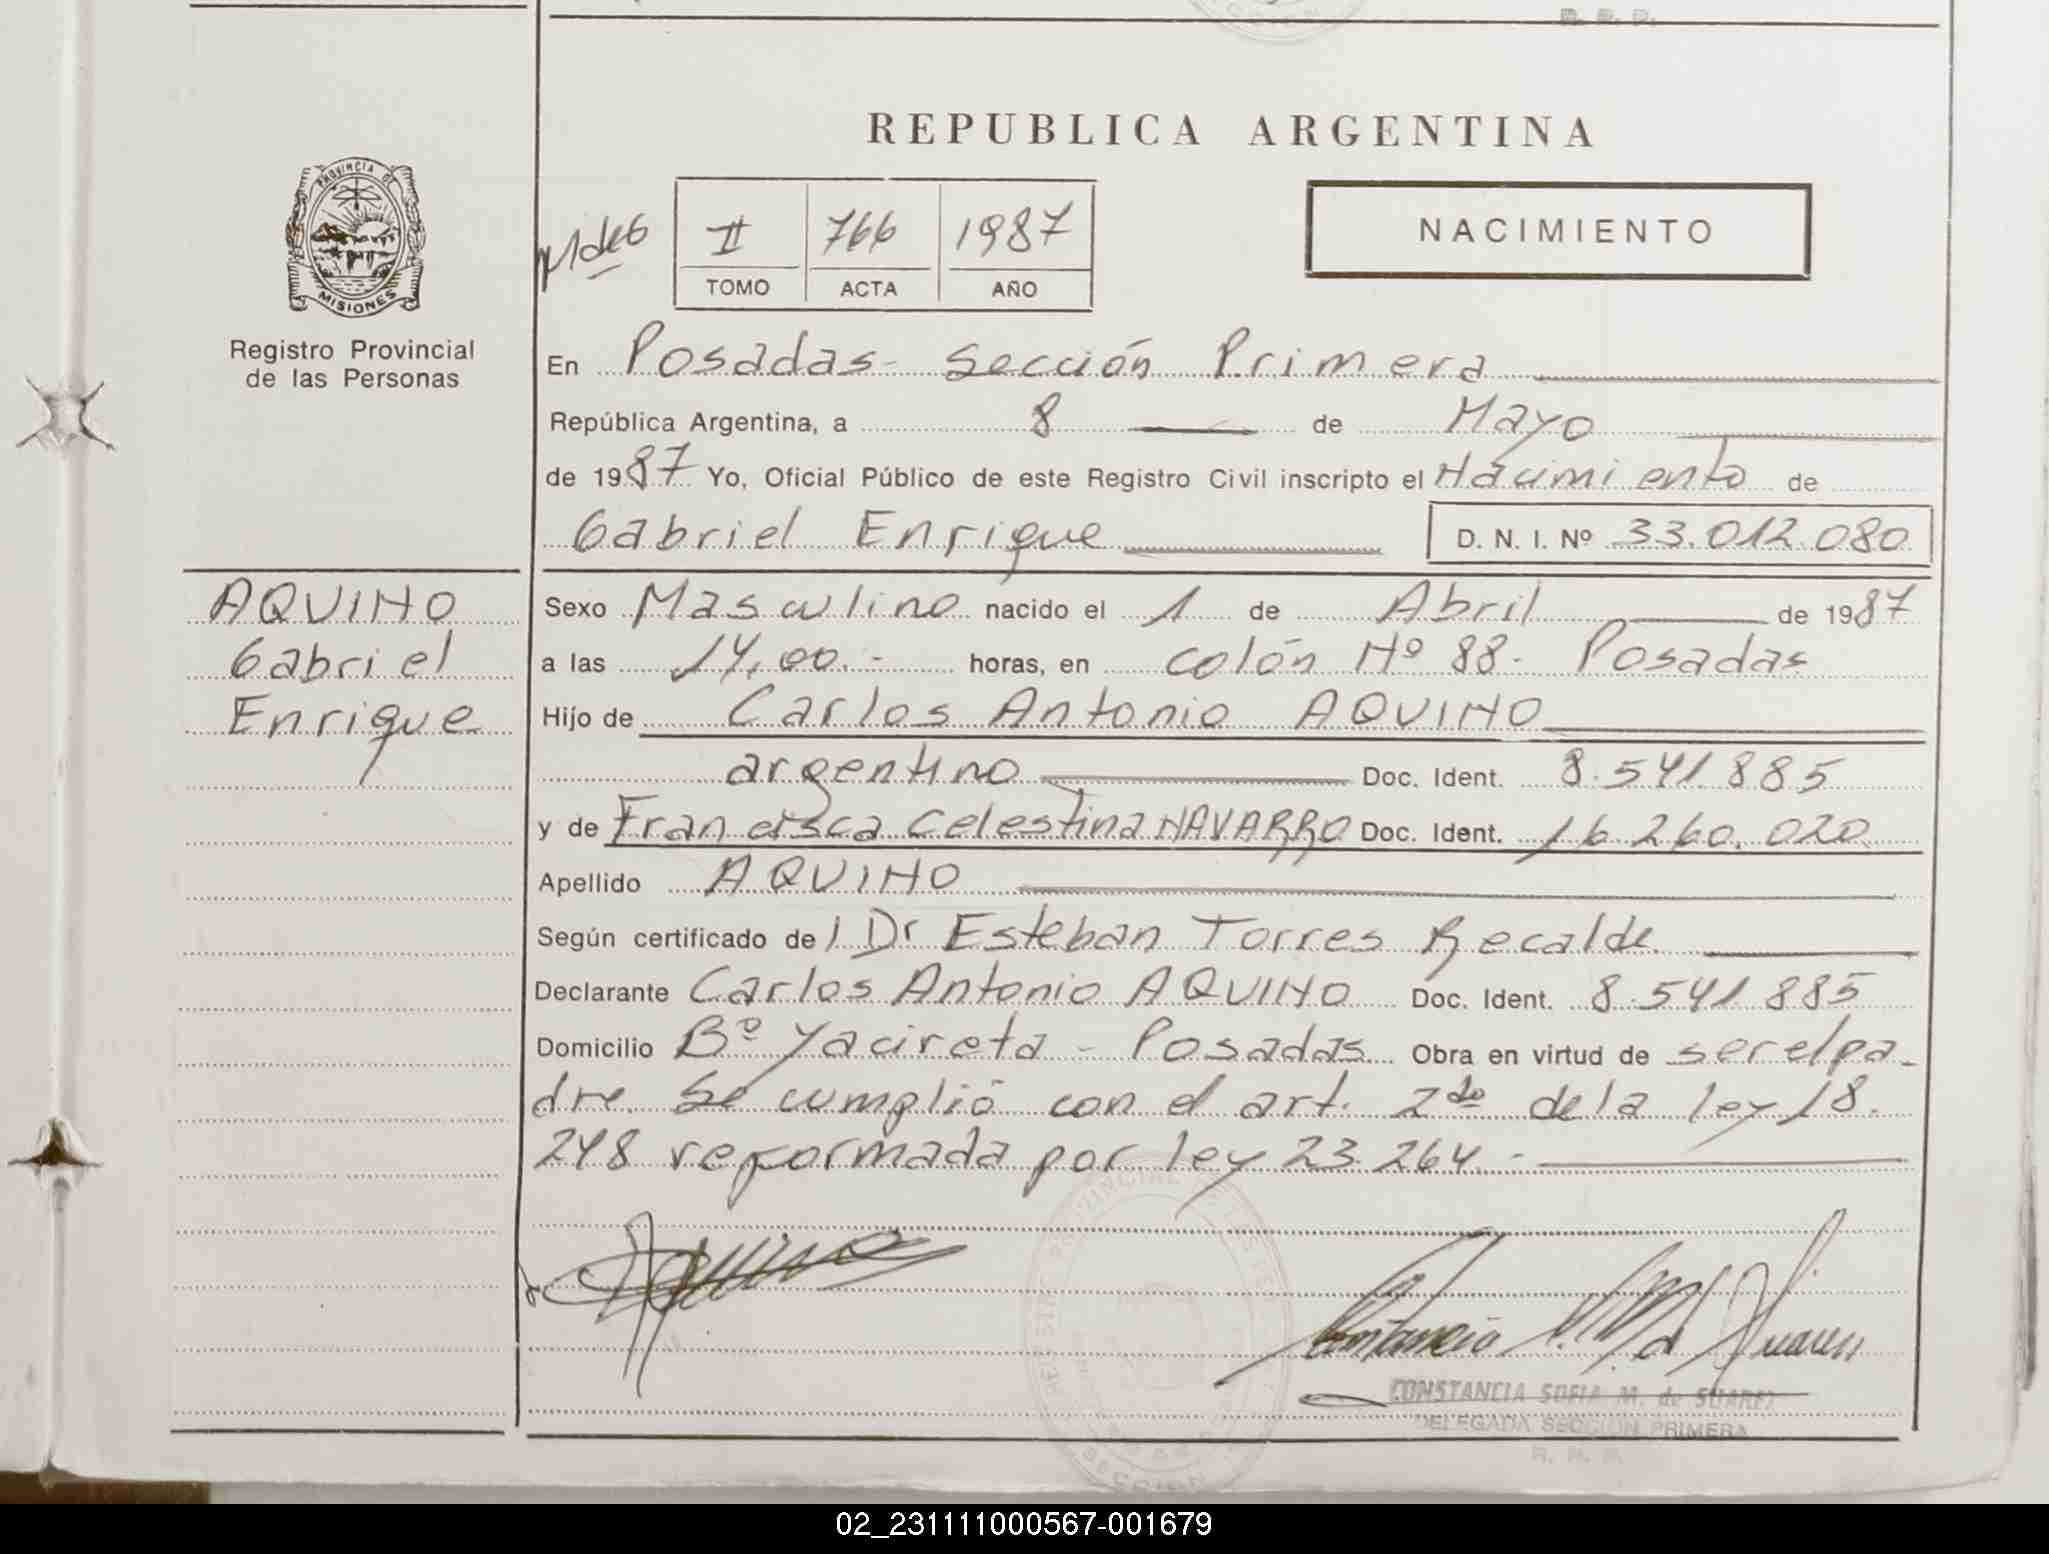 REPUBLICA ARGENTINA
PROVINCIA DE
MISIONES
Registro Provincial
de las Personas
II 766 1987
TOMO ACTA AÑO
NACIMIENTO
En Posadas- Sección Primera
República Argentina, a 8 de Mayo
de 1987 Yo, Oficial Público de este Registro Civil inscripto el Nacimiento de
Gabriel Enrique D. N. I. Nº 33.012.080
AQUINO
Gabriel
Enrique
Sexo Masculino nacido el 1 de Abril de 1987
a las 14,00.- horas, en colón Nº 88- Posadas
Hijo de Carlos Antonio AQUINO
argentino Doc. Ident. 8.541.885
y de Francisca Celestina NAVARRO Doc. Ident. 16.260.020
Apellido AQUINO
Según certificado de l Dr Esteban Torres Recalde
Declarante Carlos Antonio AQUINO Doc. Ident. 8.541.885
Domicilio Bº Yacireta - Posadas Obra en virtud de ser el pa-
dre. Se cumplió con el art. 2do de la ley 18.
248 reformada por ley 23.264.-
CONSTANCIA SOFIA M. de SUAREZ
DELEGADA SECCION PRIMERA
02_231111000567-001679